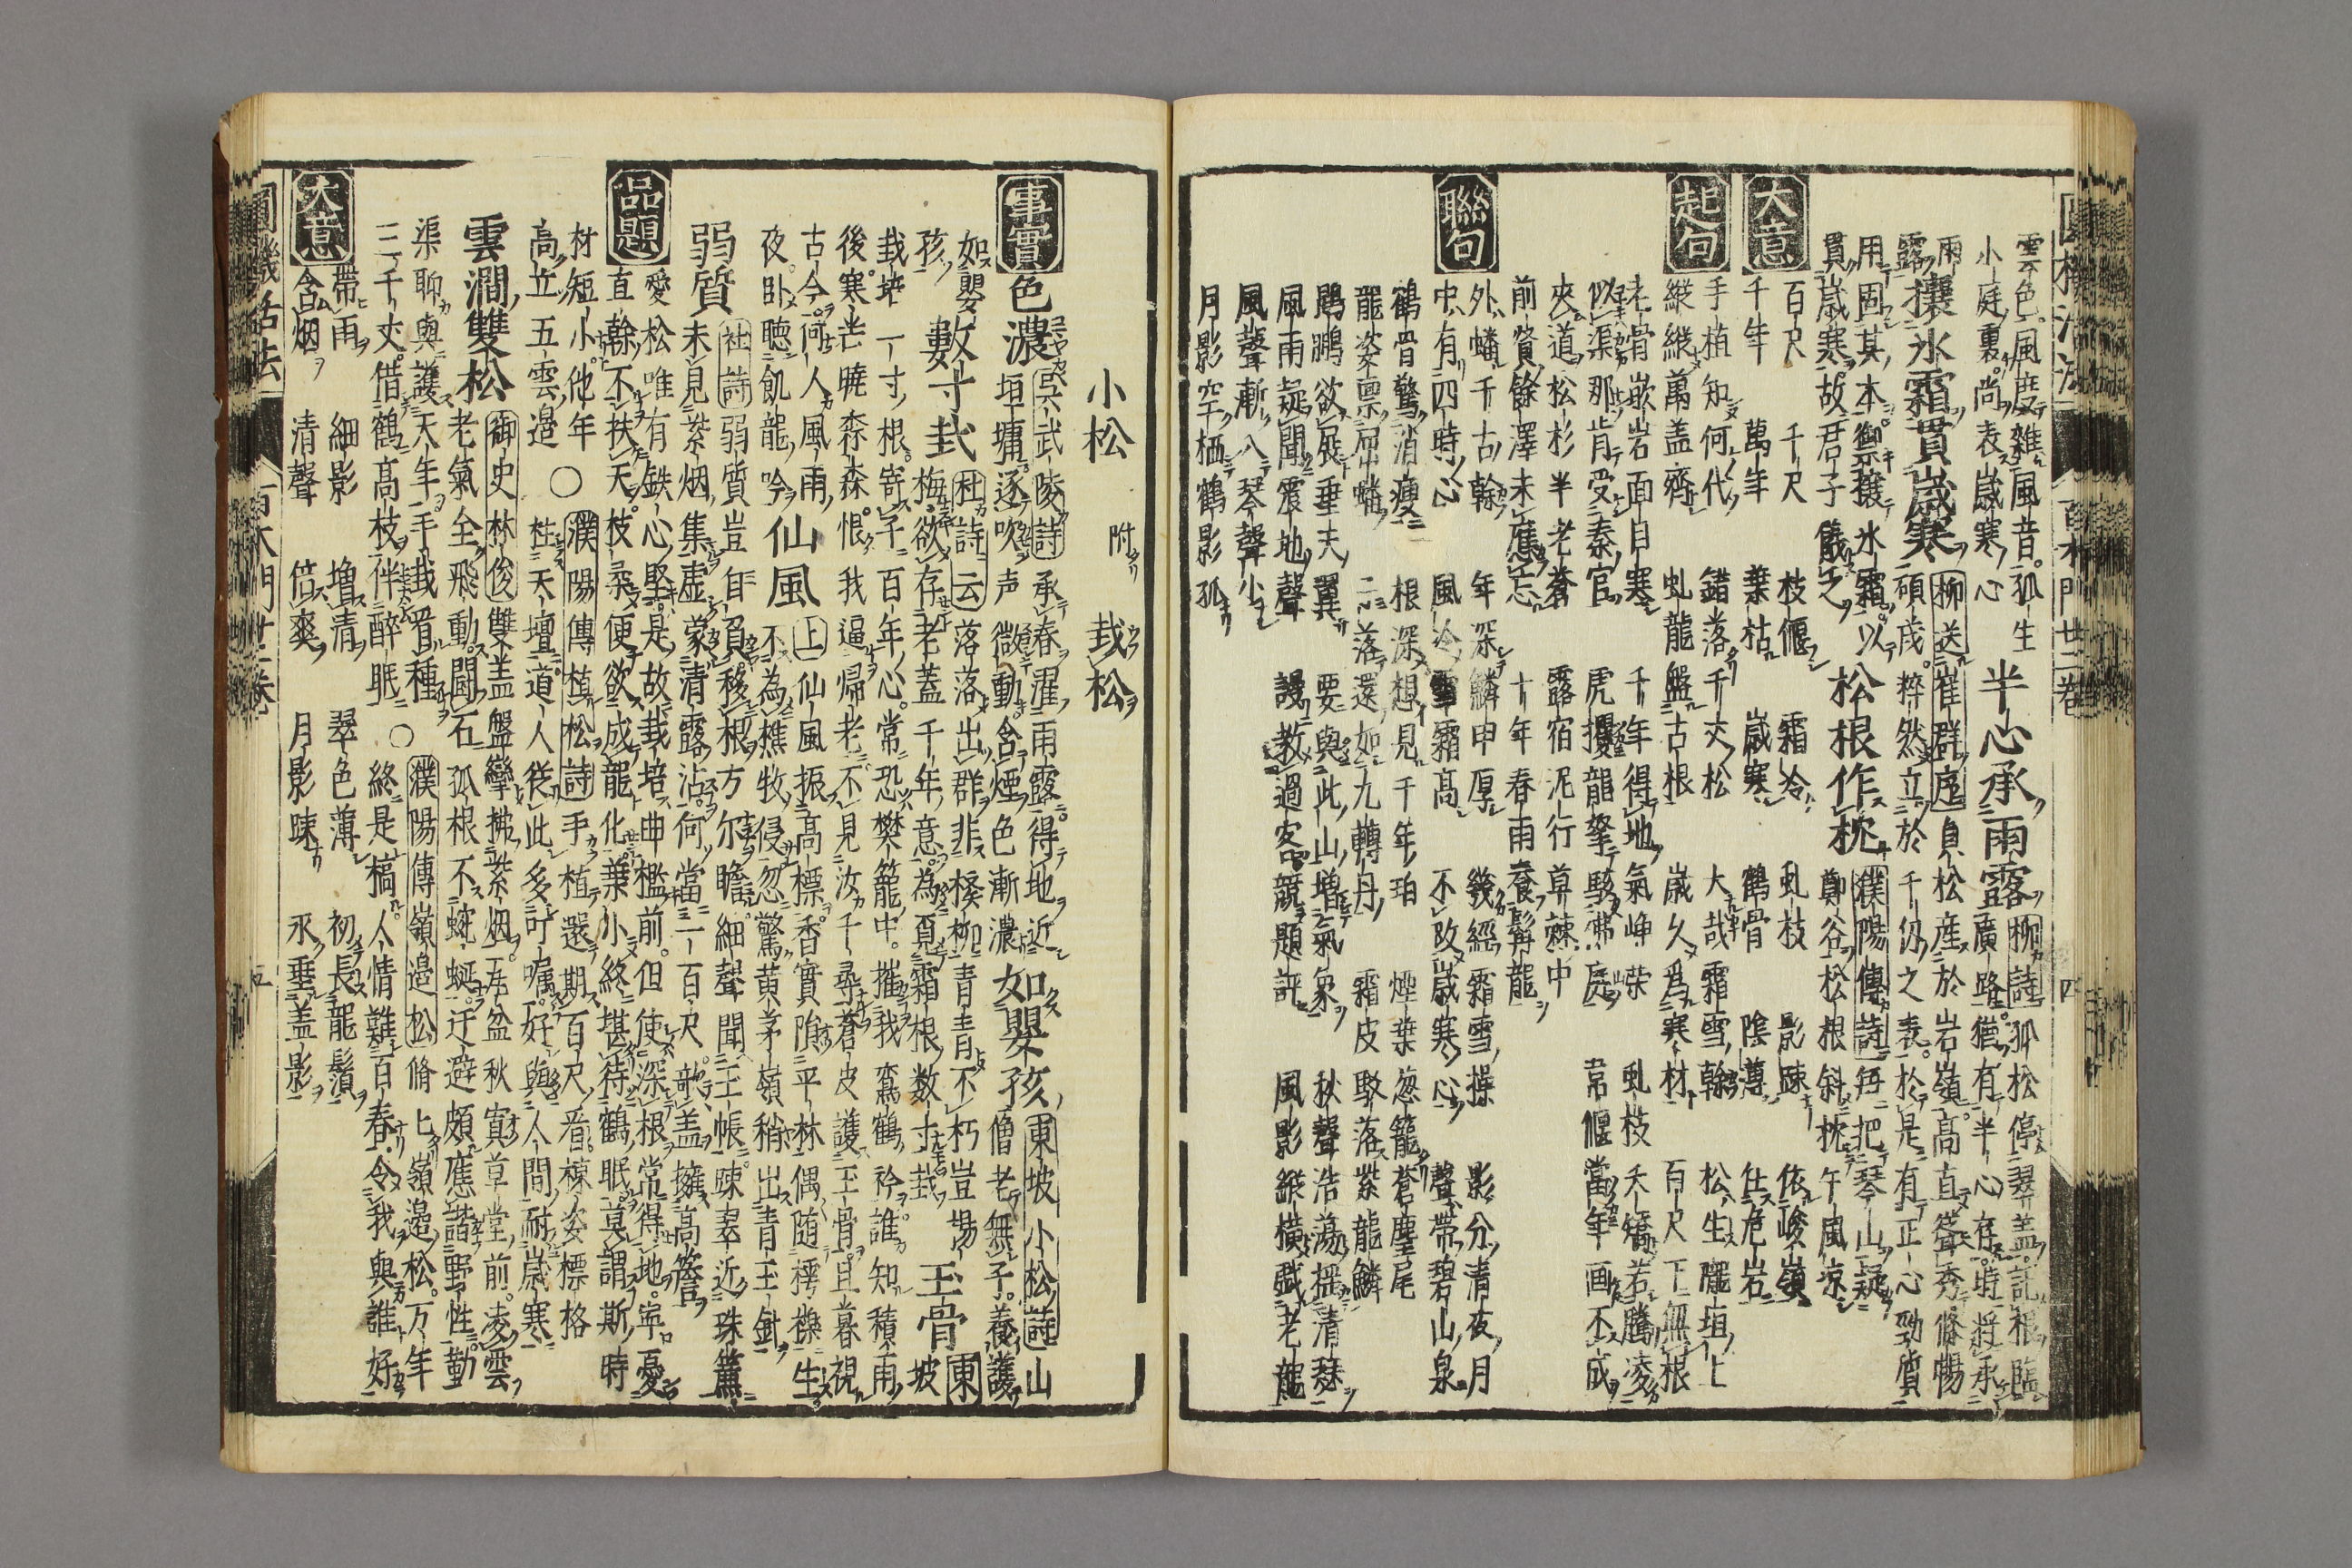 雲色風度雜風音孤生 半心承雨露 柳詩 孤松停翠盖託根臨
小庭裏尚表歲寒心 廣路 有半心存時將承
雨露 攘氷霜貫歲寒 柳送崔群序 負松産於岩嶺高直聳秀條暢
碩茂粹然立於千仭之表於是有正心勁質
用固其本禦攘氷霜以 松根作枕 濮陽傳詩 再把琴山疑
貫歲寒故君子儀之 鄭谷松根斜枕午風凉
大意
百尺 千尺 枝偃 霜冷 虬枝 影踈 依峻嶺
千年 萬年 葉枯 歲寒 鶴骨 陰薄 仕危岩
起句
手植知何代 錯落千丈松 大哉霜雪幹 松生隴垣上
縱縱萬盖齊 虬龍盤古根 歲久爲寒材 百尺下無根
老骨嵌岩面自寒 千年得地氣崢嶸 虬枝夭矯若騰凌
似渠那肯受秦官 虎攫龍拏駭沸庭 常偃當年画不成
夾道松杉半老蒼 露宿泥行草棘中
前賢餘澤未應忘 十年春雨養髯龍
聯句
外蟠千古幹 年深鱗甲厚 幾經霜雪操 影分清夜月
中有四時心 風冷雪霜高 不改歲寒心 聲帶碧山泉
鶴骨驚消瘦 根深想見千年珀 煙葉葱籠蒼麈尾
龍姿禀屈蟠 二落還如九轉丹 霜皮駁落紫龍鱗
鵰鵬欲展垂天翼 要與此山增氣象 秋聲浩蕩揺清瑟
風雨疑聞震地聲 謾教過客競題評 風影縱橫戯老龍
風聲漸入琴聲小
月影空栖鶴影孤
圓機活法 百木門廿二卷 四
小松 附 栽松
事實
色濃 呉武陵詩 承春濯雨露得地近
垣墉逐吹声微動含煙色漸濃 如嬰孩 東坡小松詩 山
僧老無子養護
如嬰孩 數寸栽 杜詩云 落落出群非櫸柳青青不朽豈楊
梅欲存老蓋千年意為覓霜根数寸栽 玉骨 東坡
栽培一寸根寄子百年心常恐樊籠中摧我鸞鶴衿誰知積雨
後寒芒曉森森恨我逼帰老不見汝千尋蒼皮護玉骨旦暮視
古今何人風雨夜卧聴飢龍吟 仙風 上 仙風振高標香實隕平林偶随樗櫟生
不為樵牧侵忽驚黄茅嶺稍出青玉針
弱質 杜詩 弱質豈自負移根方尓瞻細聲聞玉帳踈翠近珠簾
未見紫烟集虚蒙清露沾何當一百尺欹盖擁高簷
品題
愛松唯有鉄心堅是故栽培曲檻前但使深根常得地寧憂
直幹不扶天枝柔便欲成龍化葉小終堪待鶴眠莫謂斯時
材短小他年 ○ 濮陽傳植松詩 手植還期百尺看棟姿標格
高立五雲邉 柱天壇道人従此多叮嘱好與人間耐歲寒
雲澗雙松 御史林俊 雙盖盤攣拂紫烟 秋寘草堂前凌雲
老氣全飛動鬪石孤根不蜿蜒迂避頗應諧野性勤
渠聊與護天年手栽晋種 ○ 濮陽傳嶺邉松 脩上嶺邉松万年
三千丈借鶴高枝伴醉眠 終是槁人情難百春令我與誰好
大意
帶雨 細影 増清 翠色薄 初長龍鬚
含烟 清聲 倍爽 月影踈 永垂盖影
圓機活法 百木門廿二卷 五